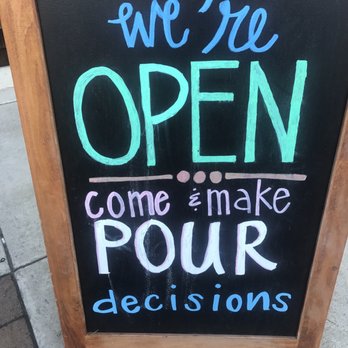 we're
OPEN
come & make
POUR
decisions